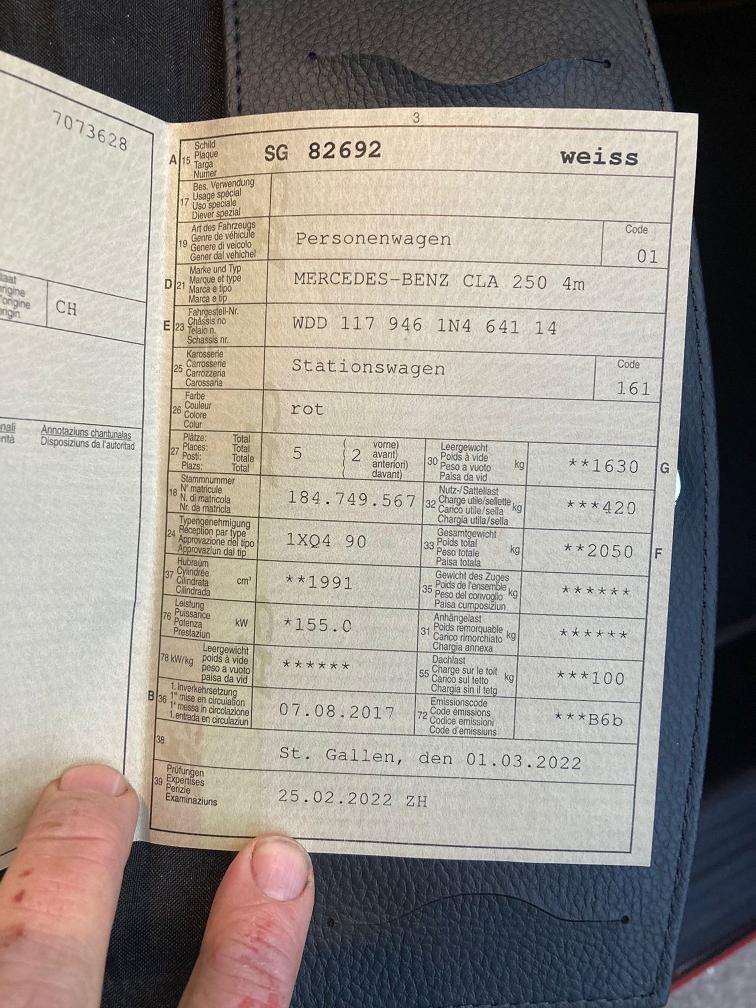 7073628
CH
Annotaziuns chantunalas
Disposiziuns da l'autoritad
3
A 15 Schild
Plaque
Targa
Numer
SG 82692 weiss
17 Bes. Verwendung
Usage spécial
Uso speciale
Diever spezial
19 Art des Fahrzeugs
Genre de véhicule
Genere di veicolo
Gener dal vehichel
Personenwagen
Code
01
D 21 Marke und Typ
Marque et type
Marca e tipo
Marca e tip
MERCEDES-BENZ CLA 250 4m
E 23 Fahrgestell-Nr.
Châssis no
Telaio n.
Schassis nr.
WDD 117 946 1N4 641 14
25 Karosserie
Carrosserie
Carrozzeria
Carossaria
Stationswagen
Code
161
26 Farbe
Couleur
Colore
Colur
rot
27 Plätze: Total
Places: Total
Posti: Totale
Plazs: Total
5
2 vorne)
avant)
anteriori)
davant)
30 Leergewicht
Poids à vide
Peso a vuoto kg
Paisa da vid
**1630 G
18 Stammnummer
N° matricule
N. di matricola
Nr. da matricla
184.749.567
32 Nutz-/Sattellast
Charge utile/sellette kg
Carico utile/sella
Chargia utila/sella
***420
24 Typengenehmigung
Réception par type
Approvazione del tipo
Approvaziun dal tip
1XQ4 90
33 Gesamtgewicht
Poids total
Peso totale kg
Paisa totala
**2050 F
37 Hubraum
Cylindrée
Cilindrata cm³
Cilindrada
**1991
35 Gewicht des Zuges
Poids de l'ensemble
Peso del convoglio kg
Paisa cumposiziun
******
76 Leistung
Puissance
Potenza kW
Prestaziun
*155.0
31 Anhängelast
Poids remorquable
Carico rimorchiato kg
Chargia annexa
******
78 kW/kg Leergewicht
poids à vide
peso a vuoto
paisa da vid
******
55 Dachlast
Charge sur le toit
Carico sul tetto kg
Chargia sin il tetg
***100
B 36 1. Inverkehrsetzung
1re mise en circulation
1a messa in circolazione
1. entrada en circulaziun
07.08.2017
72 Emissionscode
Code émissions
Codice emissioni
Code d'emissiuns
***B6b
38
St. Gallen, den 01.03.2022
39 Prüfungen
Expertises
Perizie
Examinaziuns
25.02.2022 ZH